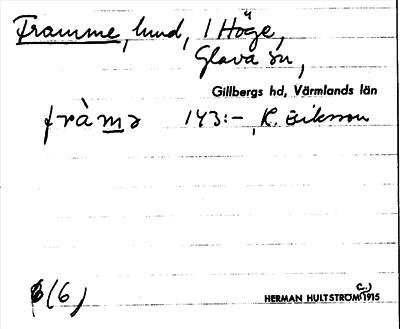 Framme, hund, 1 Höge,
Glava sn,
Gillbergs hd, Värmlands län
fràmə 143:-, R. Eriksson
6(6)
HERMAN HULTSTRÖM (C.) 1915